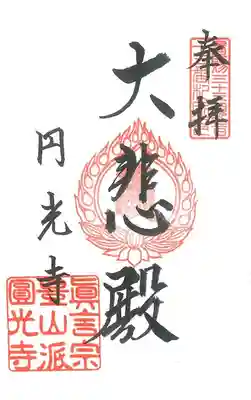 奉拝
大悲殿
円光寺
眞言宗
山派
圓光寺